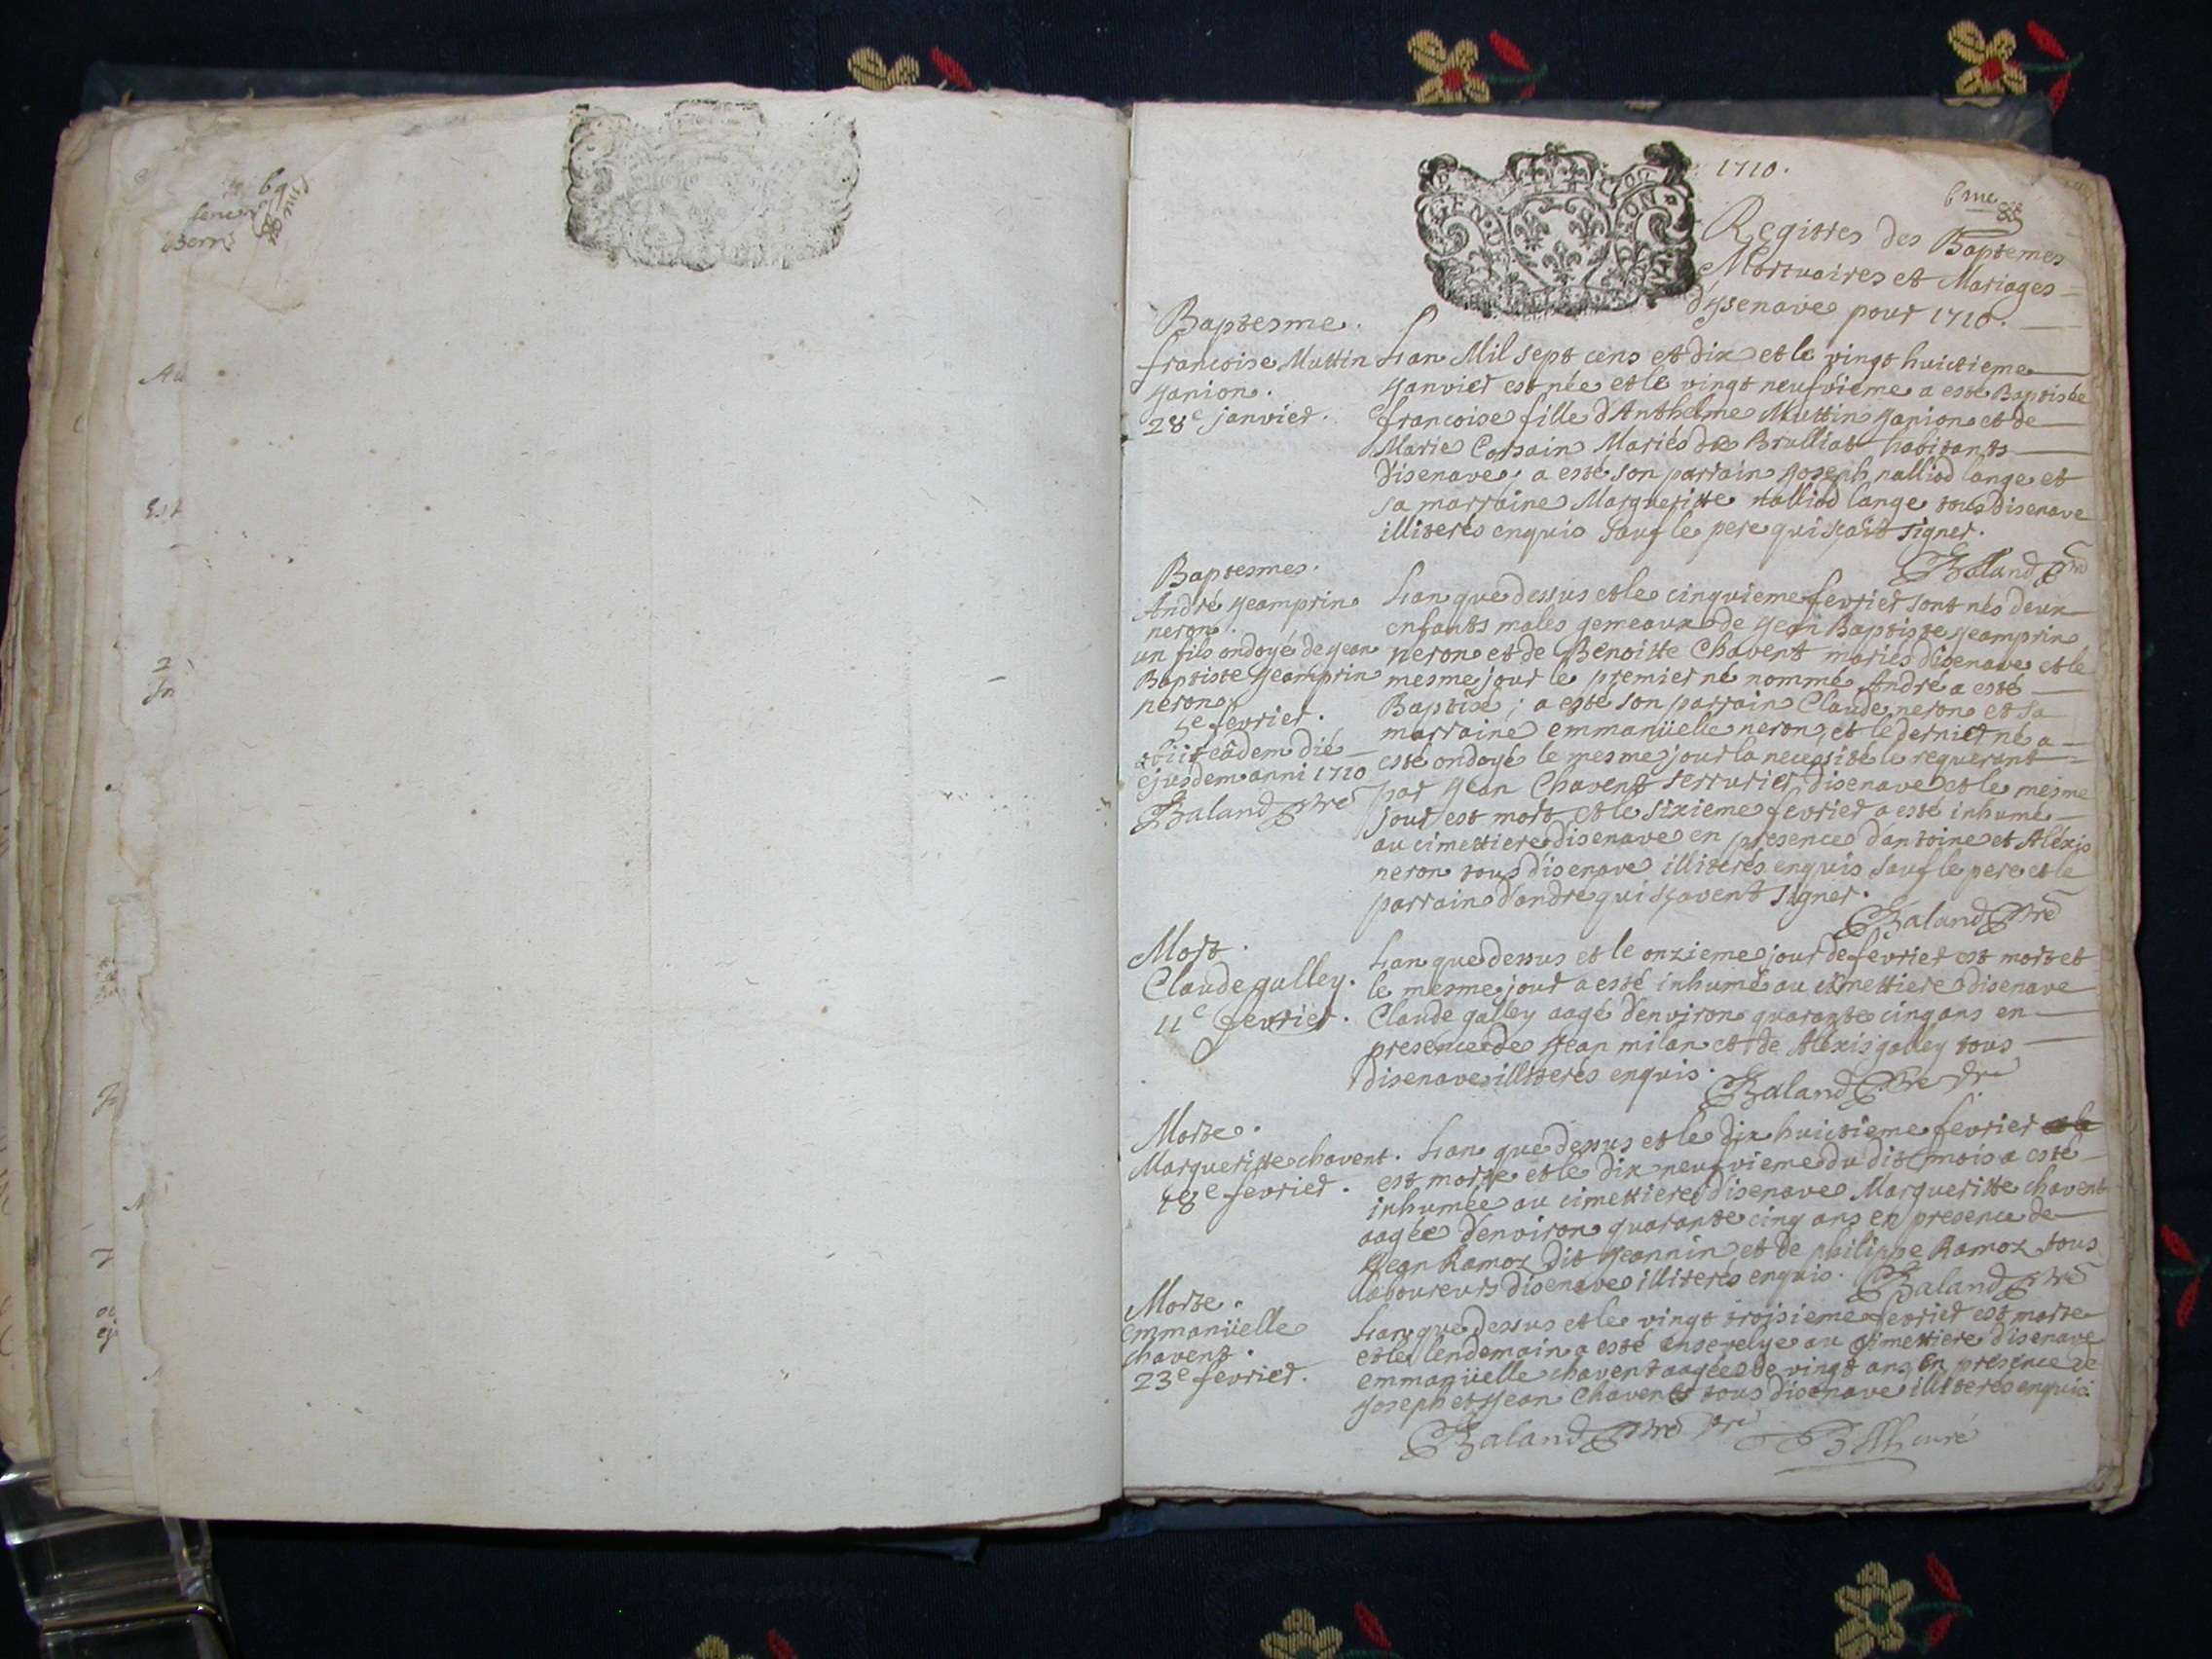 1710.
6me
Registres des Baptemes
Mortuaires et Mariages
d'isenave pour 1710.
Baptesme.
francoise Muttin
ganion.
28e janvier.
Lan Mil sept cens et dix et le vingt huictieme
Janvier est née et le vingt neufvieme a esté Baptisée
francoise fille d'Anthelme Muttin ganion et de
Marie Corsain Mariés de Brulliat habitants
disenave; a esté son parrain Joseph nalliod lange et
sa marraine Margueritte nalliod lange tous disenave
illiterés enquis sauf le pere qui sçait signer.
Baland
Baptesmes.
André Jeamprin
neron.
un fils ondoyé de Jean
Baptiste Jeamprin
neron.
5e fevrier.
obiit eâdem die
ejusdem anni 1710
Baland pre
Lan que dessus et le cinquieme fevrier sont nés deux
enfants males gemeaux de Jean Baptiste Jeamprin
neron et de Benoitte Chavent mariés disenave et le
mesme jour le premier né nommé André a esté
Baptisé; a esté son parrain Claude neron et sa
marraine emmanüelle neron, et le dernier né a
esté ondoyé le mesme jour la necessité le requerant
par Jean Chavent serrurier disenave et le mesme
jour est mort et le sixieme fevrier a esté inhumé
au cimettiere disenave en presence dantoine et Aléxis
neron tous disenave illiterés enquis sauf le pere et le
parrain d'andre qui sçavent signer.
Baland pre
Mort.
Claude galley.
11e fevrier.
Lan que dessus et le onzieme jour de fevrier est mort et
le mesme jour a esté inhumé au cimettiere disenave
Claude galley aagé d'environ quarante cinq ans en
presence de Jean milan et de Aléxis galley tous
disenave illiterés enquis.
Baland pre
Morte.
Margueritte chavent.
18e fevrier.
Lan que dessus et le dix huictieme fevrier
est morte et le dix neufvieme du dit mois a esté
inhumée au cimettiere disenave Margueritte chavent
aagée d'environ quarante cinq ans en presence de
Jean Ramoz dit Jeannin et de philippe Ramoz tous
laboureurs disenave illiterés enquis. Baland pre
Morte.
emmanüelle
chavent.
23e fevrier.
Lan que dessus et le vingt troisieme fevrier est morte
et le lendemain a esté ensevelye au cimettiere disenave
emmanüelle chavent aagée de vingt ans en presence de
Joseph et Jean Chavent tous disenave illiterés enquis.
Baland pre
curé